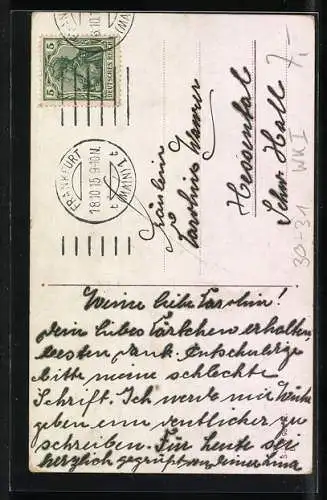 5
DEUTSCHES REICH
5
FRANKFURT
18.10.15. 9-10 N.
(MAIN) 1
Fräulein
Hessental
Schw. Hall
7,-
30-31 WKI
Meine liebe Carolin!
Dein liebes Kärtchen erhalten,
besten Dank. Entschuldige
bitte meine schlechte
Schrift. Ich werde mir Mühe
geben eine deutlicher zu
schreiben. Für heute sei
herzlich gegrüßt von deiner Lina